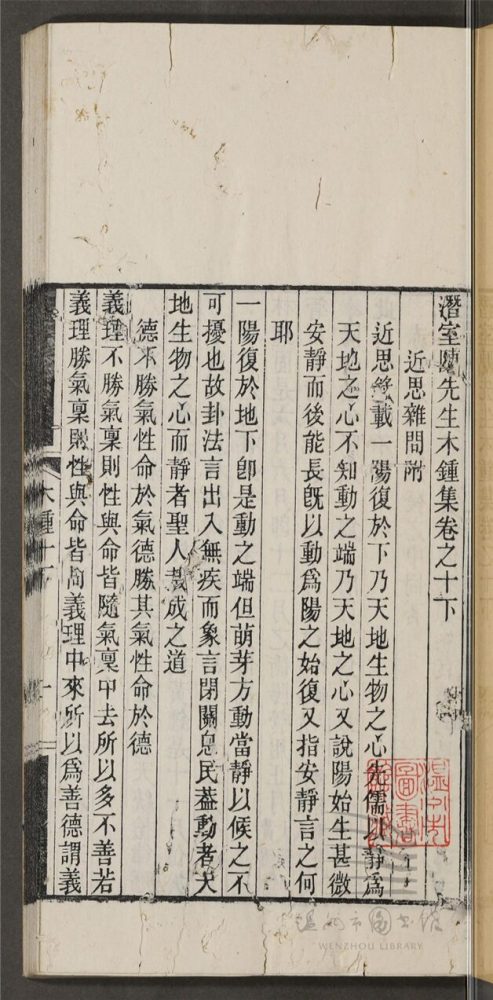 潛室陳先生木鍾集卷之十下
近思雜問附
近思錄載一陽復於下乃天地生物之心先儒以靜爲
天地之心不知動之端乃天地之心又說陽始生甚微
安靜而後能長旣以動爲陽之始復又指安靜言之何
耶
一陽復於地下卽是動之端但萌芽方動當靜以候之不
可擾也故卦法言出入無疾而象言閉關息民葢動者天
地生物之心而靜者聖人裁成之道
德不勝氣性命於氣德勝其氣性命於德
義理不勝氣稟則性與命皆隨氣稟中去所以多不善若
義理勝氣稟則性與命皆向義理中來所以爲善德謂義
木鍾十下
溫州市圖書館
WENZHOU LIBRARY